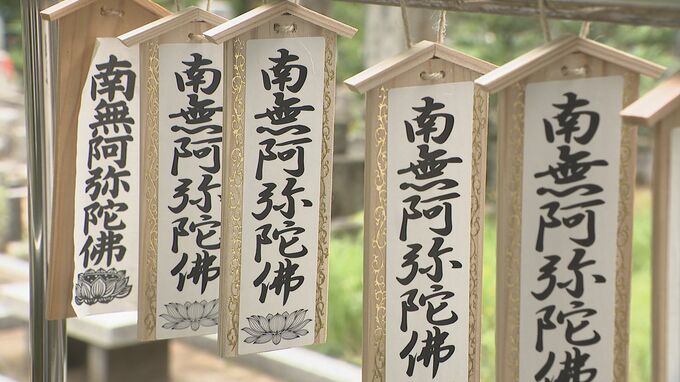 南無阿弥陀佛
南無阿弥陀佛
南無阿弥陀佛
南無阿弥陀佛
南無阿弥陀佛